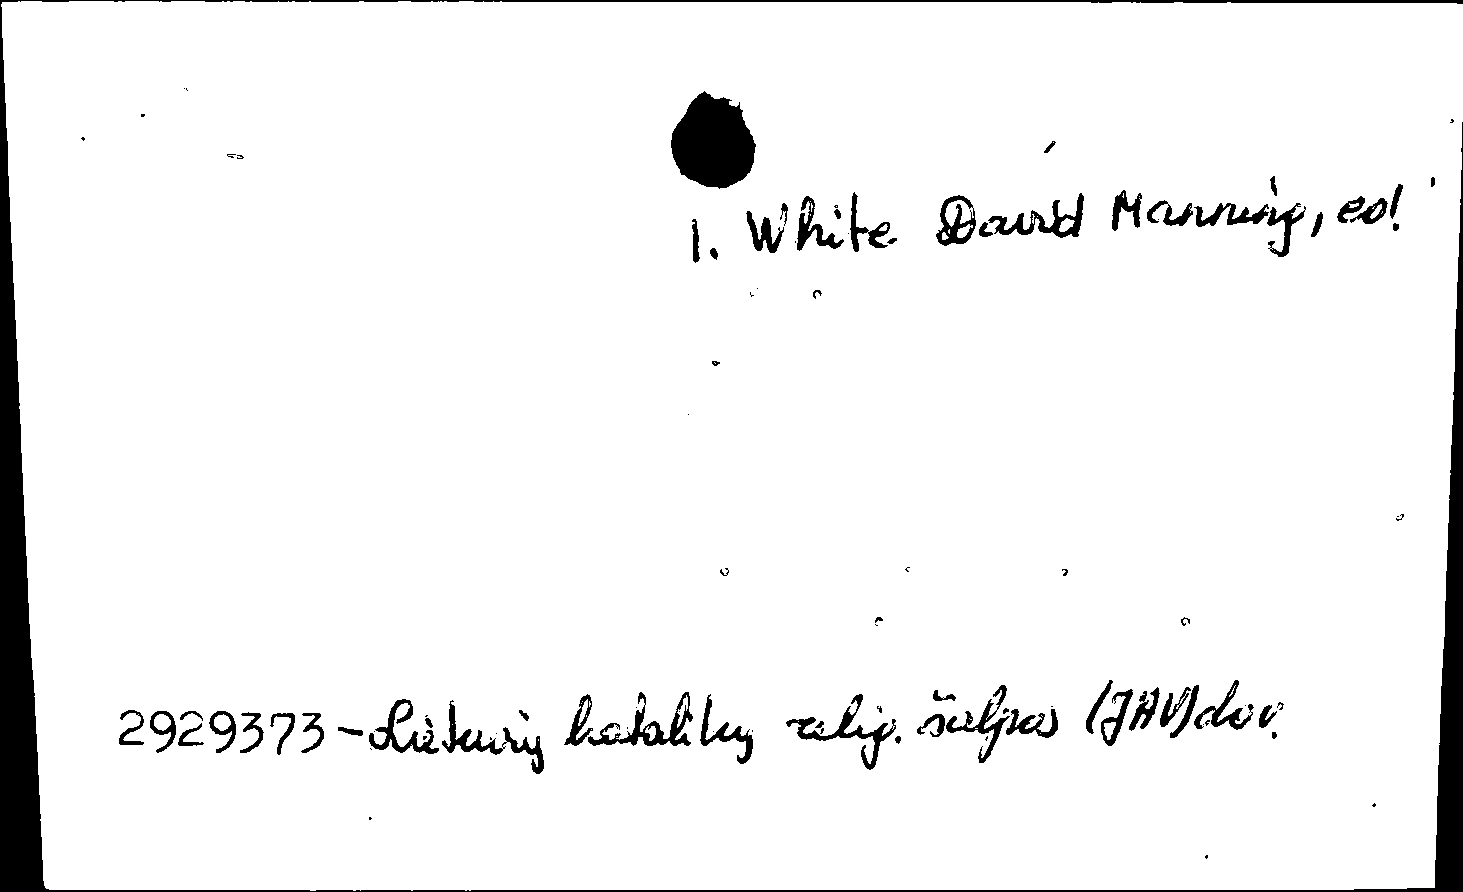 1. White David Manning, ed.
2929373 – Lietuvių katalikų relig. šalpos (JAV) dov.